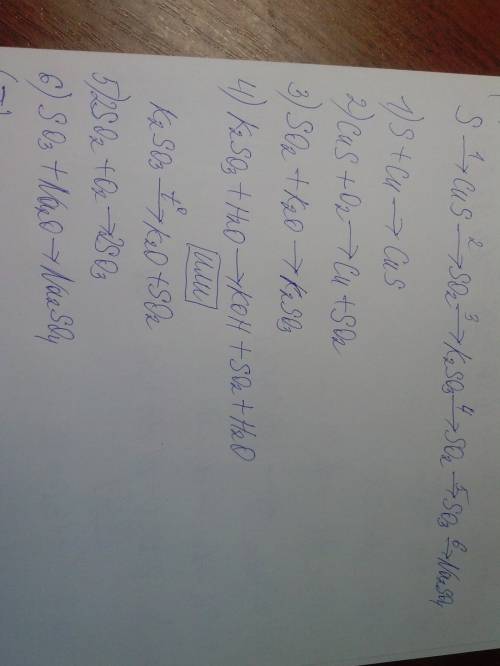 S →1 CuS →2 SO2 →3 K2SO3 →4 SO2 →5 SO3 →6 Na2SO4
1) S + Cu → CuS
2) CuS + O2 → Cu + SO2
3) SO2 + K2O → K2SO3
4) K2SO3 + H2O → KOH + SO2 + H2O
или
K2SO3 →t° K2O + SO2
5) 2SO2 + O2 → 2SO3
6) SO3 + Na2O → Na2SO4